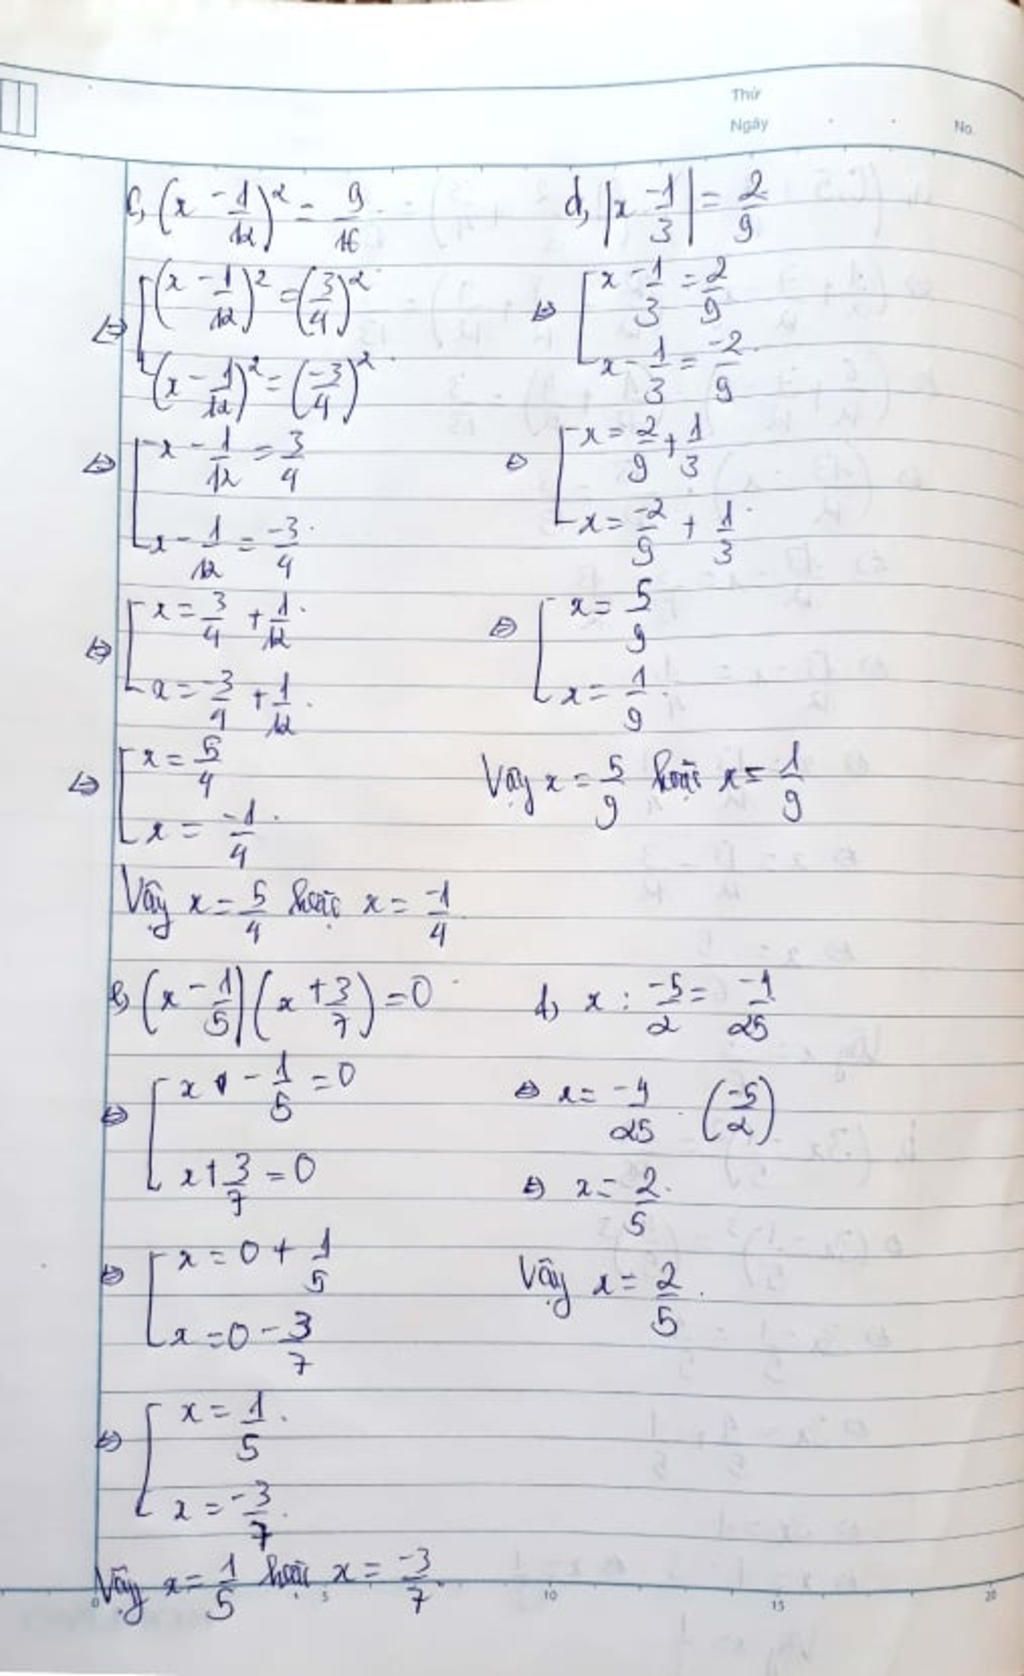 Thứ
Ngày
No.
c, (x - 1/12)² = 9/16
⇔ [ (x - 1/12)² = (3/4)²
(x - 1/12)² = (-3/4)²
⇔ [ x - 1/12 = 3/4
x - 1/12 = -3/4
⇔ [ x = 3/4 + 1/12
x = -3/4 + 1/12
⇔ [ x = 5/4
x = -1/4
Vậy x = 5/4 hoặc x = -1/4
d, |x - 1/3| = 2/9
⇔ [ x - 1/3 = 2/9
x - 1/3 = -2/9
⇔ [ x = 2/9 + 1/3
x = -2/9 + 1/3
⇔ [ x = 5/9
x = 1/9
Vậy x = 5/9 hoặc x = 1/9
e, (x - 1/5)(x + 3/7) = 0
⇔ [ x - 1/5 = 0
x + 3/7 = 0
⇔ [ x = 0 + 1/5
x = 0 - 3/7
⇔ [ x = 1/5
x = -3/7
Vậy x = 1/5 hoặc x = -3/7
x : -5/2 = -4/25
⇔ x = -4/25 . (-5/2)
⇔ x = 2/5
Vậy x = 2/5
0 5 10 15 20